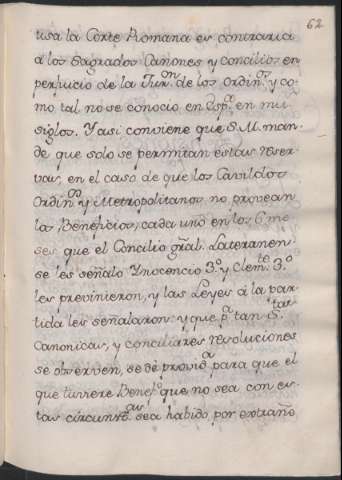 62
usa la Corte Romana es contraria
á los Sagrados Cañones y Concilios en
perjuicio de la Jurⁿ. de los Ordinᵒˢ. y co-
mo tal no se conocio en Espᵃ. en muˢ
siglos. Y asi conviene que S.M. man-
de que solo se permitan estas reser-
vas, en el caso de que los Cavildos
Ordinᵒˢ. y Metropolitanos no provean
los Beneficios, cada uno en los 6 me-
ses que el Concilio gral. Lateranen-
se les señalo Ynocencio 3º y Clemᵗᵉ. 3º
les previnieron, y las Leyes de la par-
tida les señalaron: y que pᵃ. tan Sᵗᵃˢ.
Canonicas, y conciliares resoluciones
se observen, se dè providᵃ para que el
que tuviere Benefº. que no sea con es-
tas circunstᵃˢ. sea habido por extraño,